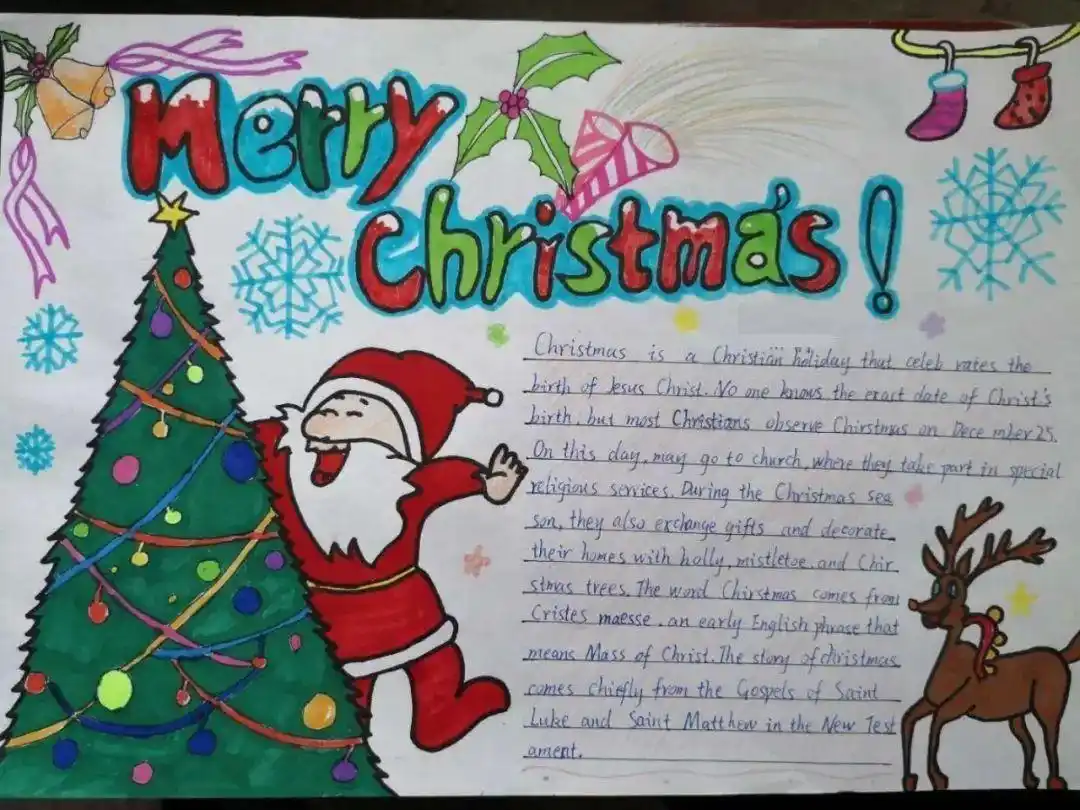 Merry
Christmas!
Christmas is a Christian holiday that celeb rates the
birth of Jesus Christ. No one knows the exact date of Christ's
birth, but most Christians observe Chirstmas on Dece mber 25.
On this day, may go to church, where they take part in special
religious services. During the Christmas sea
son, they also exchange gifts and decorate
their homes with holly, mistletoe, and Chir
stmas trees. The word Chirstmas comes from
Cristes maesse, an early English phrase that
means Mass of Christ. The story of christmas
comes chiefly from the Gospels of Saint
Luke and Saint Matthew in the New Test
ament.